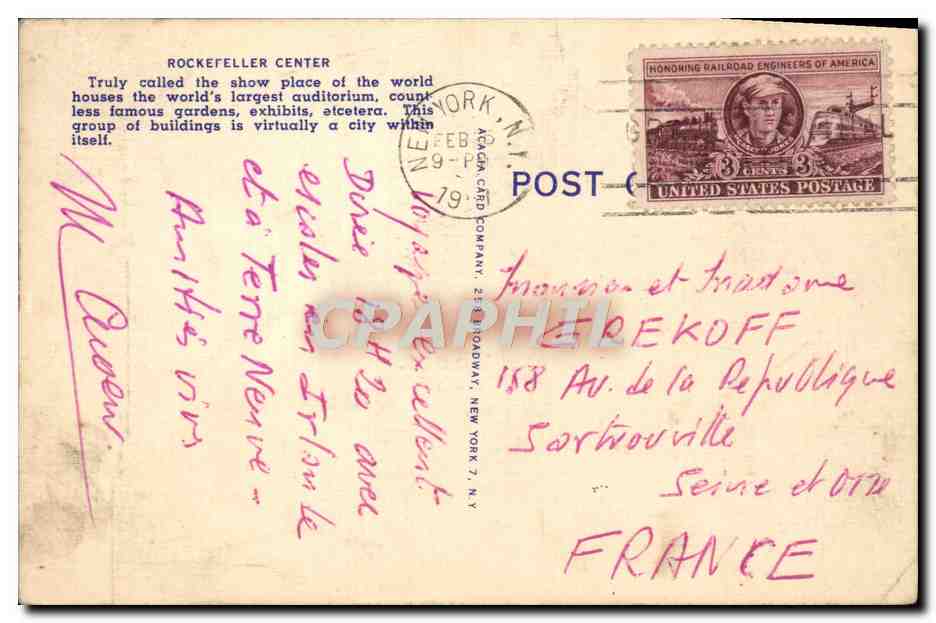 ROCKEFELLER CENTER
Truly called the show place of the world
houses the world's largest auditorium, count
less famous gardens, exhibits, etcetera. This
group of buildings is virtually a city within
itself.
NEW YORK, N.Y.
FEB
9-PM
HONORING RAILROAD ENGINEERS OF AMERICA
CASEY JONES
3 CENTS 3
UNITED STATES POSTAGE
POST C
ACACIA CARD COMPANY, 258 BROADWAY, NEW YORK 7, N.Y
Voyage excellent
Durée 16 H 20 avec
escales en Irlande
et à Terre Neuve -
Amitiés vives
M
Monsieur et Madame
EREKOFF
188 Av. de la République
Sartrouville
Seine et Oise
FRANCE
CPAPHIL